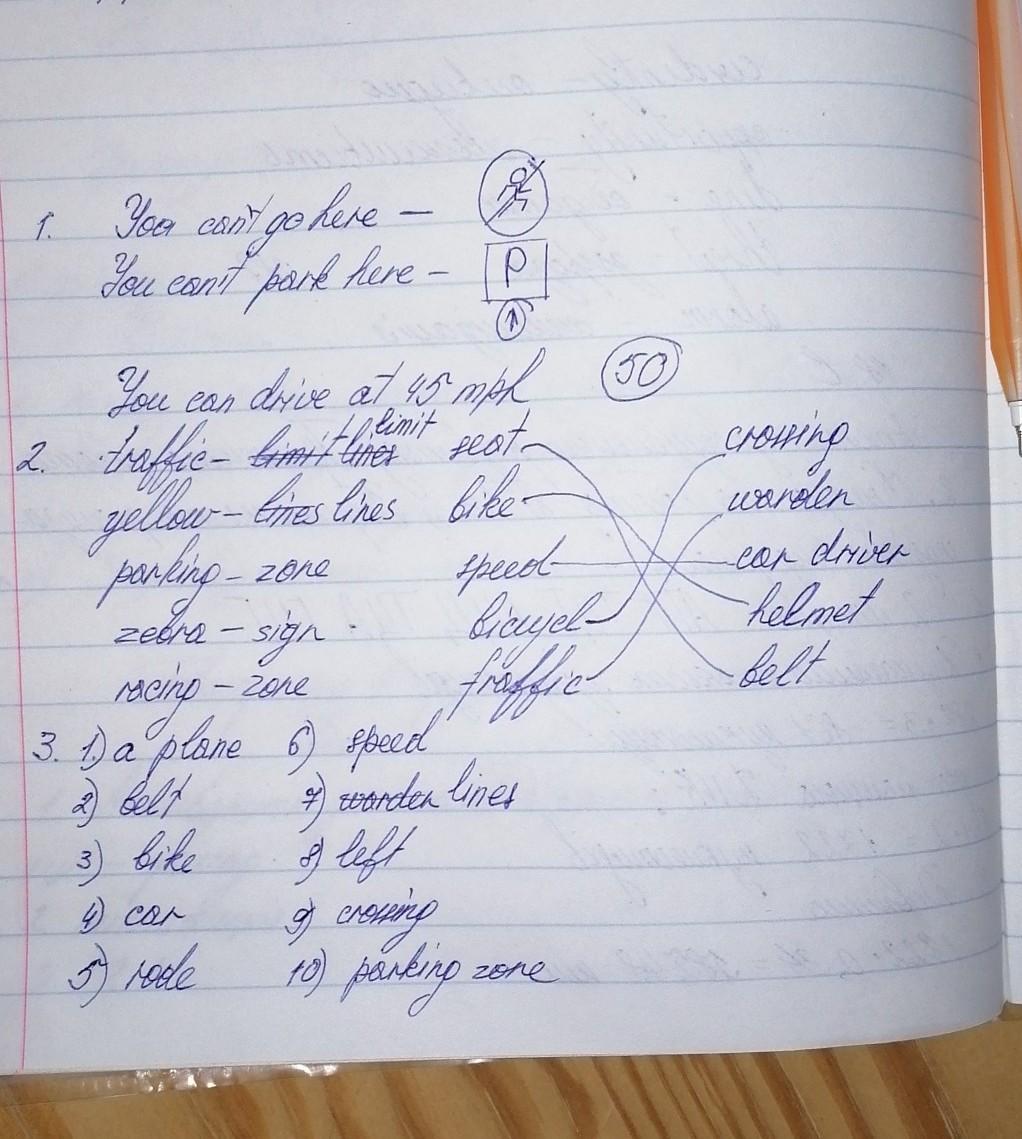 1. You can't go here –
You can't park here – P
You can drive at 45 mph 50
limit
2. traffic – limit lines seat crossing
yellow – lines lines bike warden
parking – zone speed car driver
zebra – sign bicycl helmet
racing – zone traffic belt
3. 1) a plane 6) speed
2) belt 7) warden lines
3) bike 8) left
4) car 9) crossing
5) rode 10) parking zone